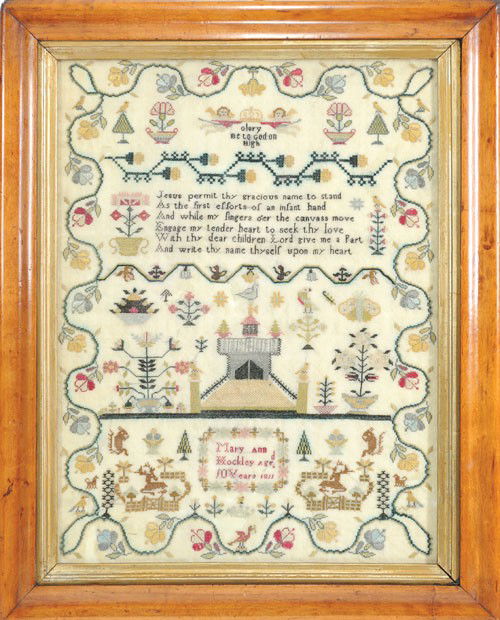 Glory
Be to God on
High
Jesus permit thy gracious name to stand
As the first efforts of an infant hand
And while my fingers o'er the canvass move
Engage my tender heart to seek thy love
With thy dear children Lord give me a Part
And write thy name thyself upon my heart
Mary Ann
Hockley Aged
10 Years 1811